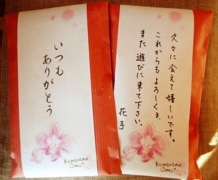 いつも
ありがとう
久々に会えて嬉しいです。
これからもよろしくね。
また遊びに来て下さい。
花子